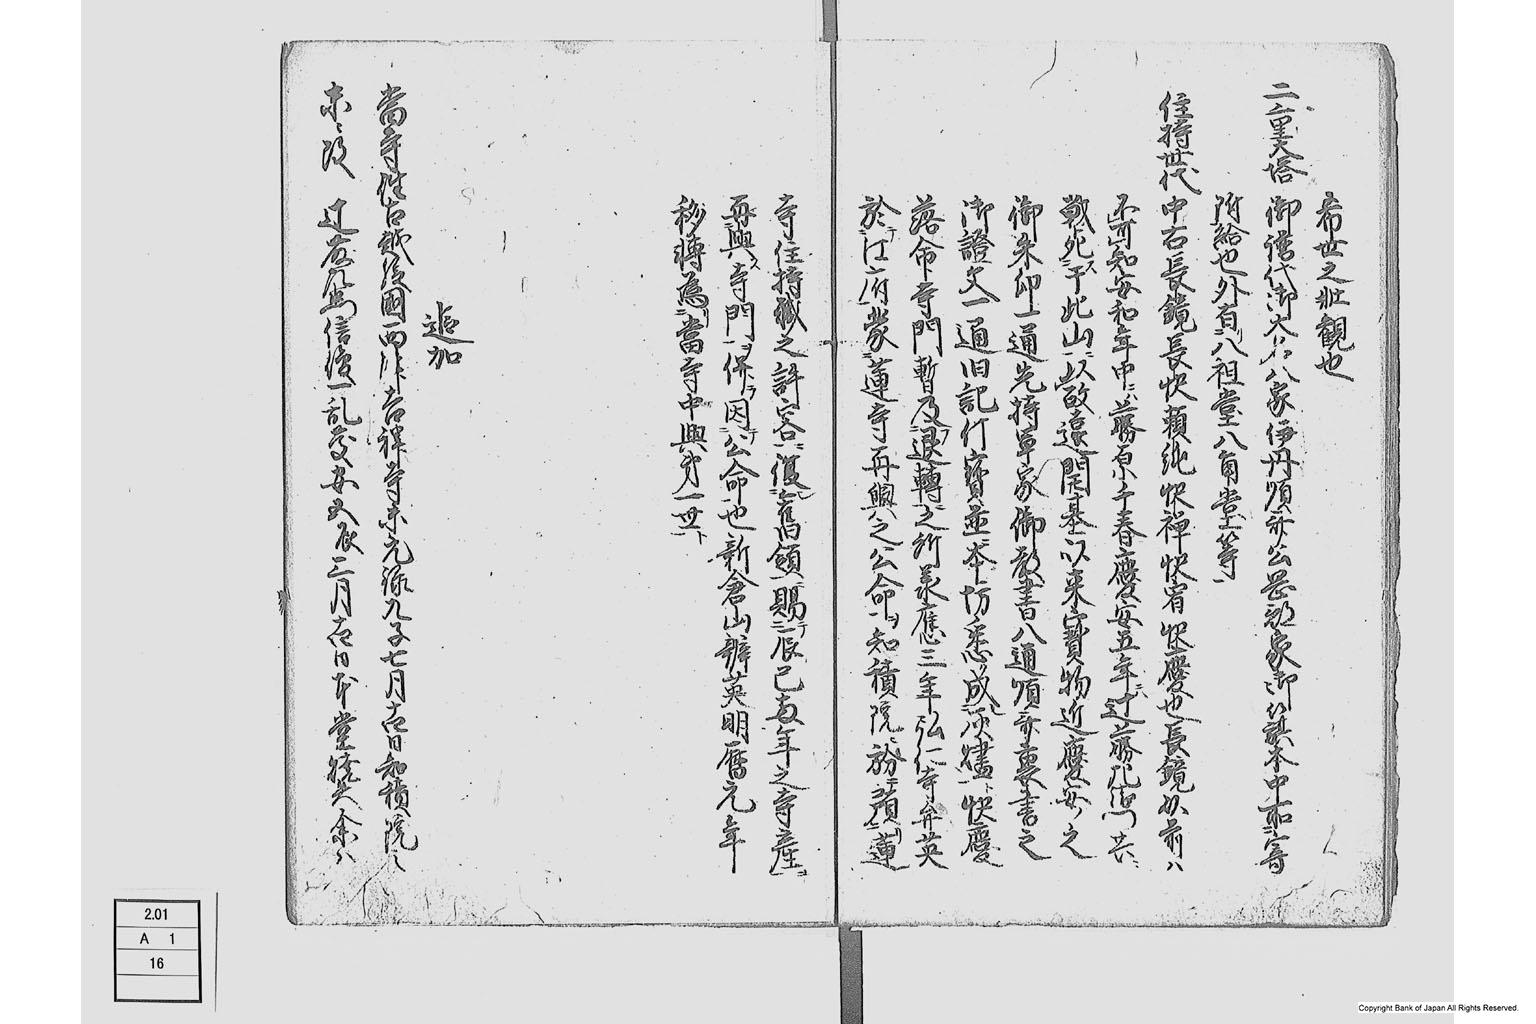 希世之壯観也
二重大塔 御譜代御大名八家伊丹順斎公岡部家御旗本中所寄
附給也外有八祖堂八角堂等
住持世代 中右長鏡長快頼純快禅快宥快慶也長鏡以前ハ
不可知安和年中ニ藤原千春慶安五年ニ辻藤左衛門共ニ
戦死ス于此山ニ以故遠開基以来宝物近慶安之
御朱印一通先将軍家御教書八通順斎裏書之
御證文一通旧記什寶並本坊悉成灰燼ト快慶
落命寺門暫及退轉之所承應三年弘仁寺弁英
於江府蒙蓮寺再興之公命ヲ知積院ニ於テ
寺住持職之許容復舊領賜テ辰巳両年之寺産ヲ
再興ス寺門ヲ併ラ因公命也新倉山辨英明暦元年
移轉為當寺中興第一世ト
追加
當寺往古越後國西津吉祥寺末元禄九子七月 日知積院之
末ニ改 辻右馬信後一乱慶安五辰三月 日本堂焼失余ハ
2.01
A 1
16
Copyright Bank of Japan All Rights Reserved.